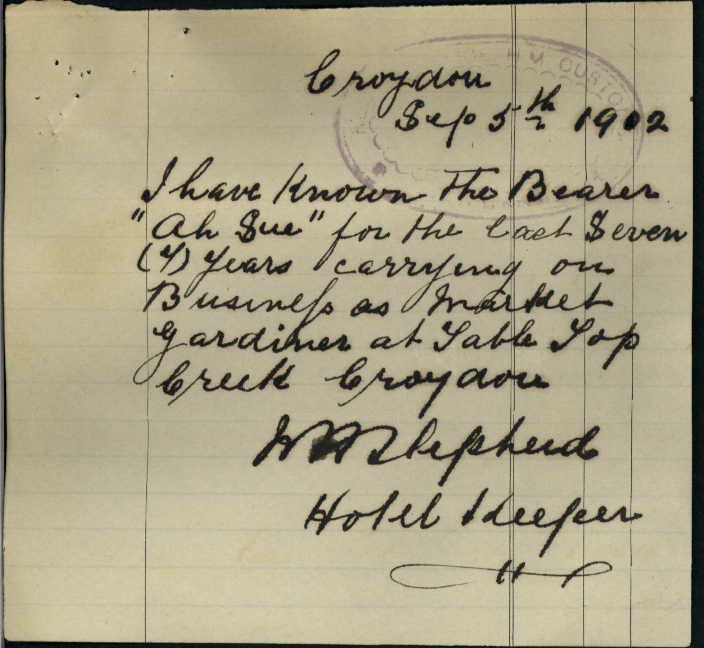 Croydon
Sep 5th 1902
I have Known The Bearer
"Ah Sue" for the last Seven
(7) Years carrying on
Business as Market
Gardiner at Table Top
Creek Croydon
Shepherd
Hotel Keeper